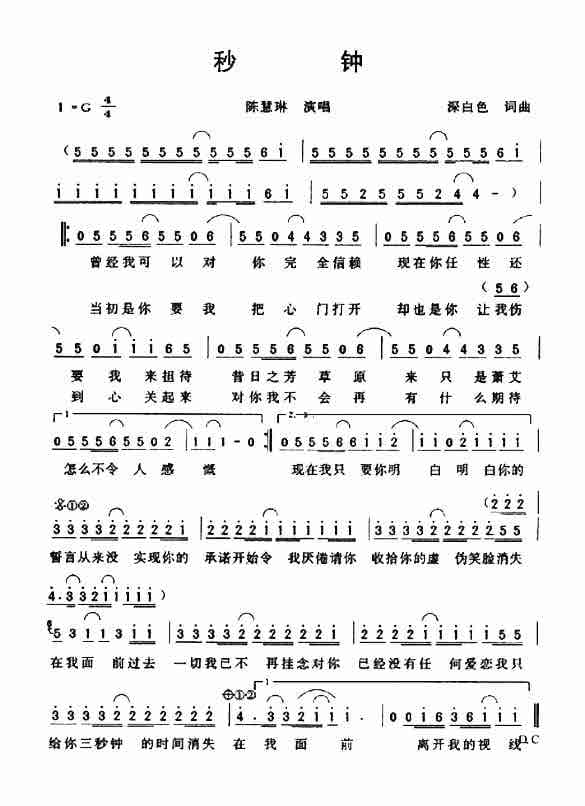 秒 钟
1=G 4/4 陈慧琳 演唱 深白色 词曲
(5555 5555 5561 | 5555 5555 5561 |
1111 1111 1161 | 5525 5524 4-)
0555 6550 6 | 5504 4335 | 0555 6550 6
曾经我可以对 你完全信赖 现在你任性还
(56)
当初是你要我 把心门打开 却也是你让我伤
5501 1165 | 0555 6550 5 | 5504 4335
要我来担待 昔日之芳草原 来只是萧艾
到心关起来 对你我不会再 有什么期待
1. 2.
0555 6550 2 | 111-0 :| 0555 5661 12 | 1102 1112
怎么不令人感慨 现在我只要你明 白明白你的
①② (222
3333 2222 21 | 2221 1111 11 | 3333 2222 55
誓言从来没 实现你的 承诺开始令 我厌倦请你 收拾你的虚 伪笑脸消失
4.3321 1111)
5311 311 | 3333 2222 221 | 2221 1111 55
在我面 前过去 一切我已不 再挂念对你 已经没有任 何爱恋我只
①② 1
3333 2222 222 | 4.3321 1 | 0016 3611
给你三秒钟 的时间消失 在我面前 离开我的视线
D.C